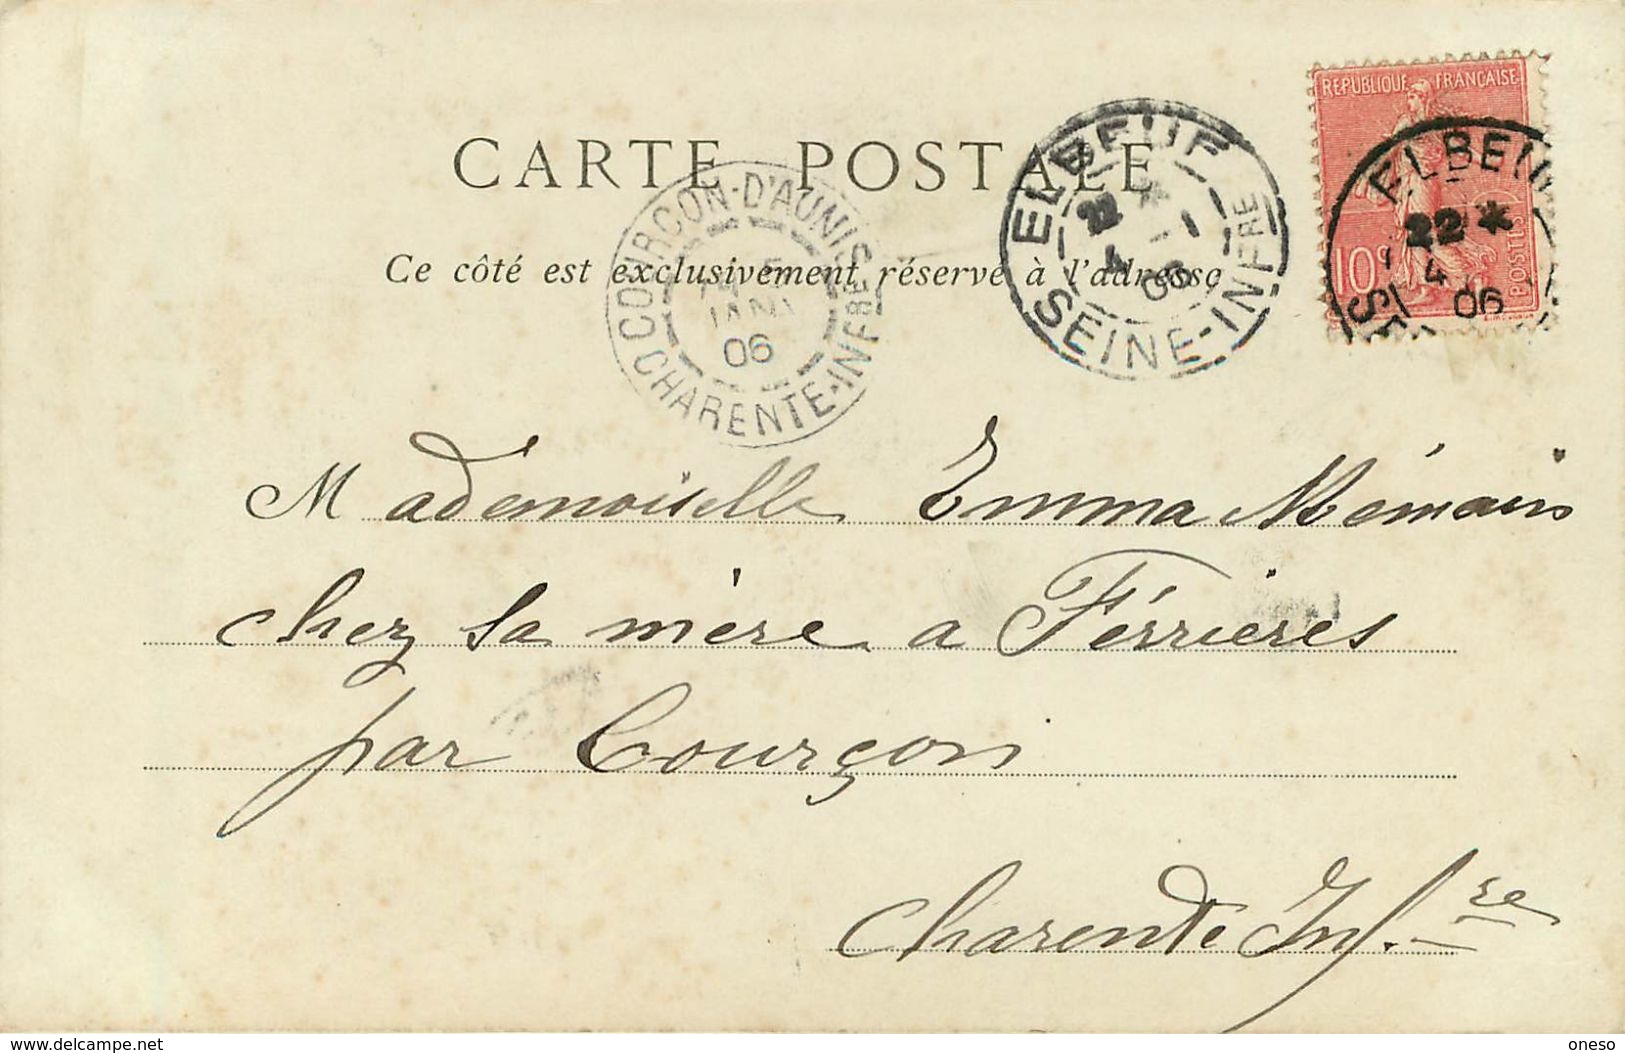 CARTE POSTALE
Ce côté est exclusivement réservé à l'adresse
COURÇON-D'AUNIS
JANV
06
CHARENTE-INFRE
ELBEUF
22 *
4 - 1
06
SEINE-INFRE
REPUBLIQUE FRANÇAISE
10c
POSTES
ELBEU
22 *
4
06
SE
Mademoiselle Emma Mémain
chez sa mère a Férrieres
par Courçon
Charente Infre
www.delcampe.net
oneso